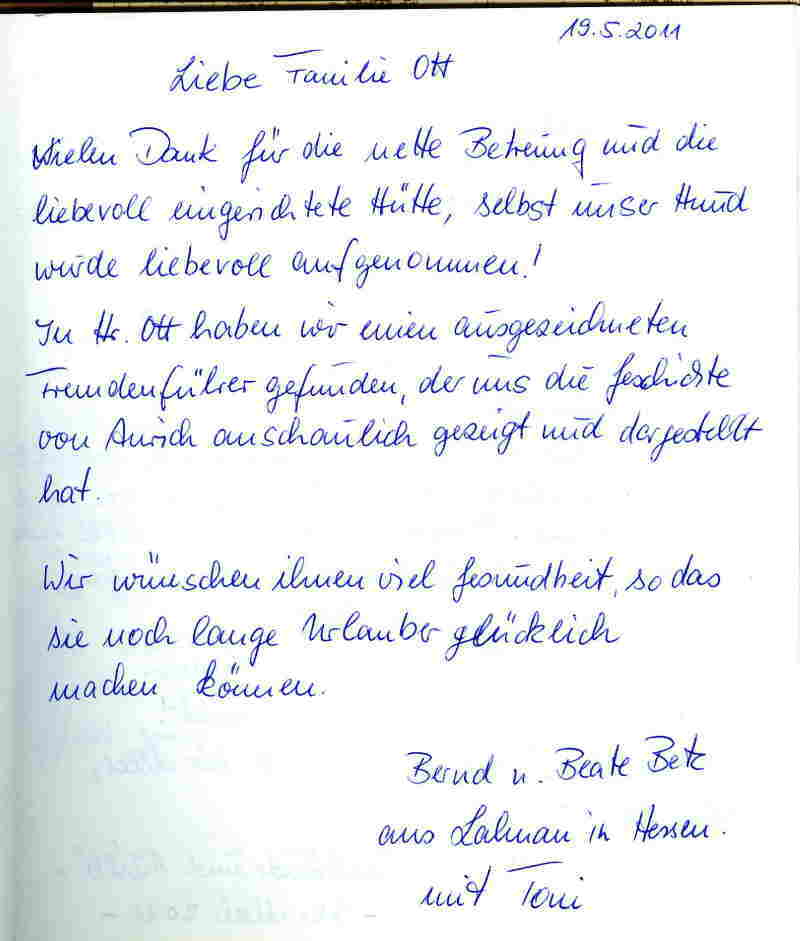 19.5.2011
Liebe Familie Ott
Vielen Dank für die nette Betreung und die
liebevoll eingerichtete Hütte, selbst unser Hund
wurde liebevoll aufgenommen!
In Hr. Ott haben wir einen ausgezeichneten
Fremdenführer gefunden, der uns die Geschichte
von Aurich anschaulich gezeigt und dargestellt
hat.
Wir wünschen ihnen viel Gesundheit, so das
sie noch lange Urlauber glücklich
machen können.
Bernd u. Beate Betz
aus Lahnau in Hessen.
mit Toni